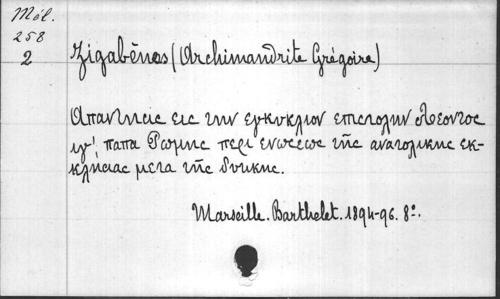 Mél.
258
2
Zigabênos (Archimandrite Grégoire)
Απαντησις εις την εγκυκλιον επιστολην Λεοντος
ιγ' παπα Ρωμης περι ενωσεως τῆς ανατολικης εκ-
κλησιας μετα τῆς δυτικης.
Marseille. Barthelet. 1894-96. 8º.